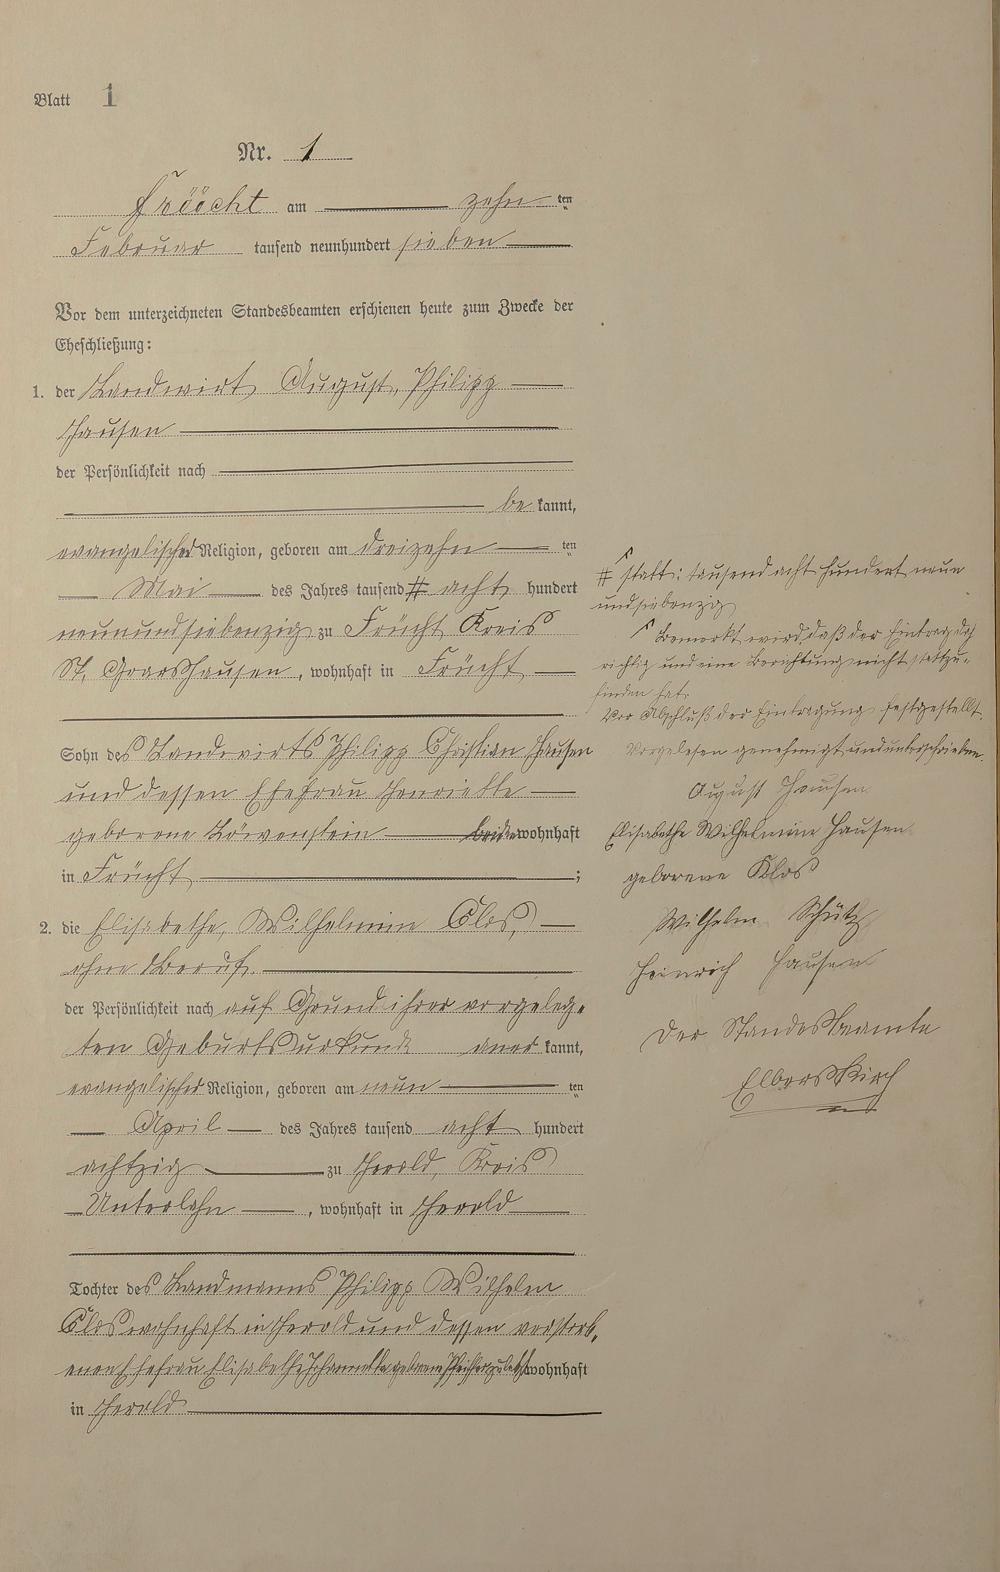 Blatt 1
Nr. 1
Frücht am zehn ten
Februar tausend neunhundert sieben
Vor dem unterzeichneten Standesbeamten erschienen heute zum Zwecke der
Eheschließung:
1. der Landwirt August, Philipp
Hausen
der Persönlichkeit nach
be kannt,
evangelischer Religion, geboren am dreizehn ten
Mai des Jahres tausend # acht hundert
neunundsiebenzig zu Frücht Kreis
St. Goarshausen, wohnhaft in Frücht
Sohn des Landwirts Philipp Christian Hausen
und dessen Ehefrau Henriette
geborene Löwenstein beide wohnhaft
in Frücht ;
2. die Elisabethe, Wilhelmine Clos,
ohne Beruf
der Persönlichkeit nach auf Grund ihrer vorgeleg-
ten Geburtsurkunde aner kannt,
evangelischer Religion, geboren am neun ten
April des Jahres tausend acht hundert
achtzig zu Herold, Kreis
Unterlahn, wohnhaft in Herold
Tochter des Landmanns Philipp Wilhelm
Clos wohnhaft in Herold und dessen verstorb-
enen Ehefrau Elisabethe geborene zuletzt wohnhaft
in Herold
# statt: tausend acht hundert neun
undsiebenzig
Bemerkt wird, daß der Eintrag
richtig und eine Berichtung nicht stattzu-
finden hat.
Vor Abschluß der Eintragung festgestellt.
Vorgelesen genehmigt und unterschrieben.
August Hausen
Elisabethe Wilhelmine Hausen
geborene Klos
Wilhelm Schütz
Heinrich Hausen
Der Standesbeamte
Elberskirch